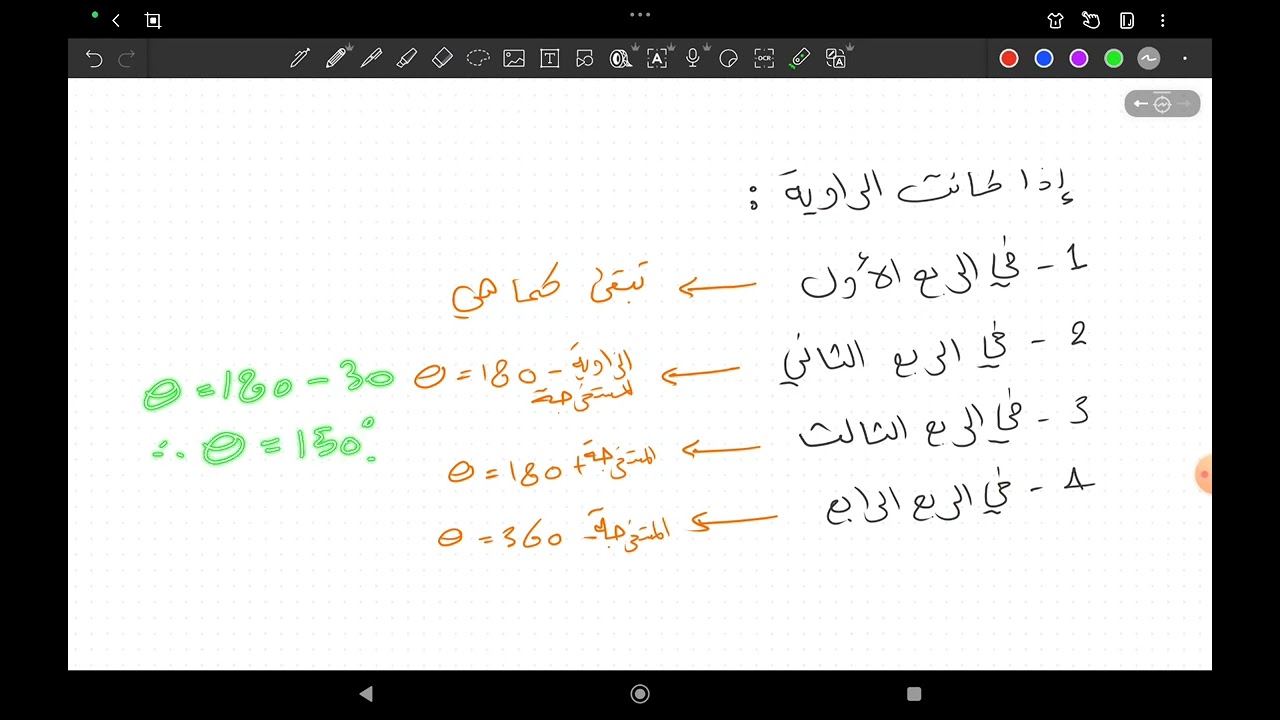 إذا كانت الزاوية :
1 - في الربع الأول ← تبقى كما هي
2 - في الربع الثاني ← θ = 180 - الزاوية المستخرجة
θ = 180 - 30
∴ θ = 150°
3 - في الربع الثالث ← θ = 180 + المستخرجة
4 - في الربع الرابع ← θ = 360 - المستخرجة